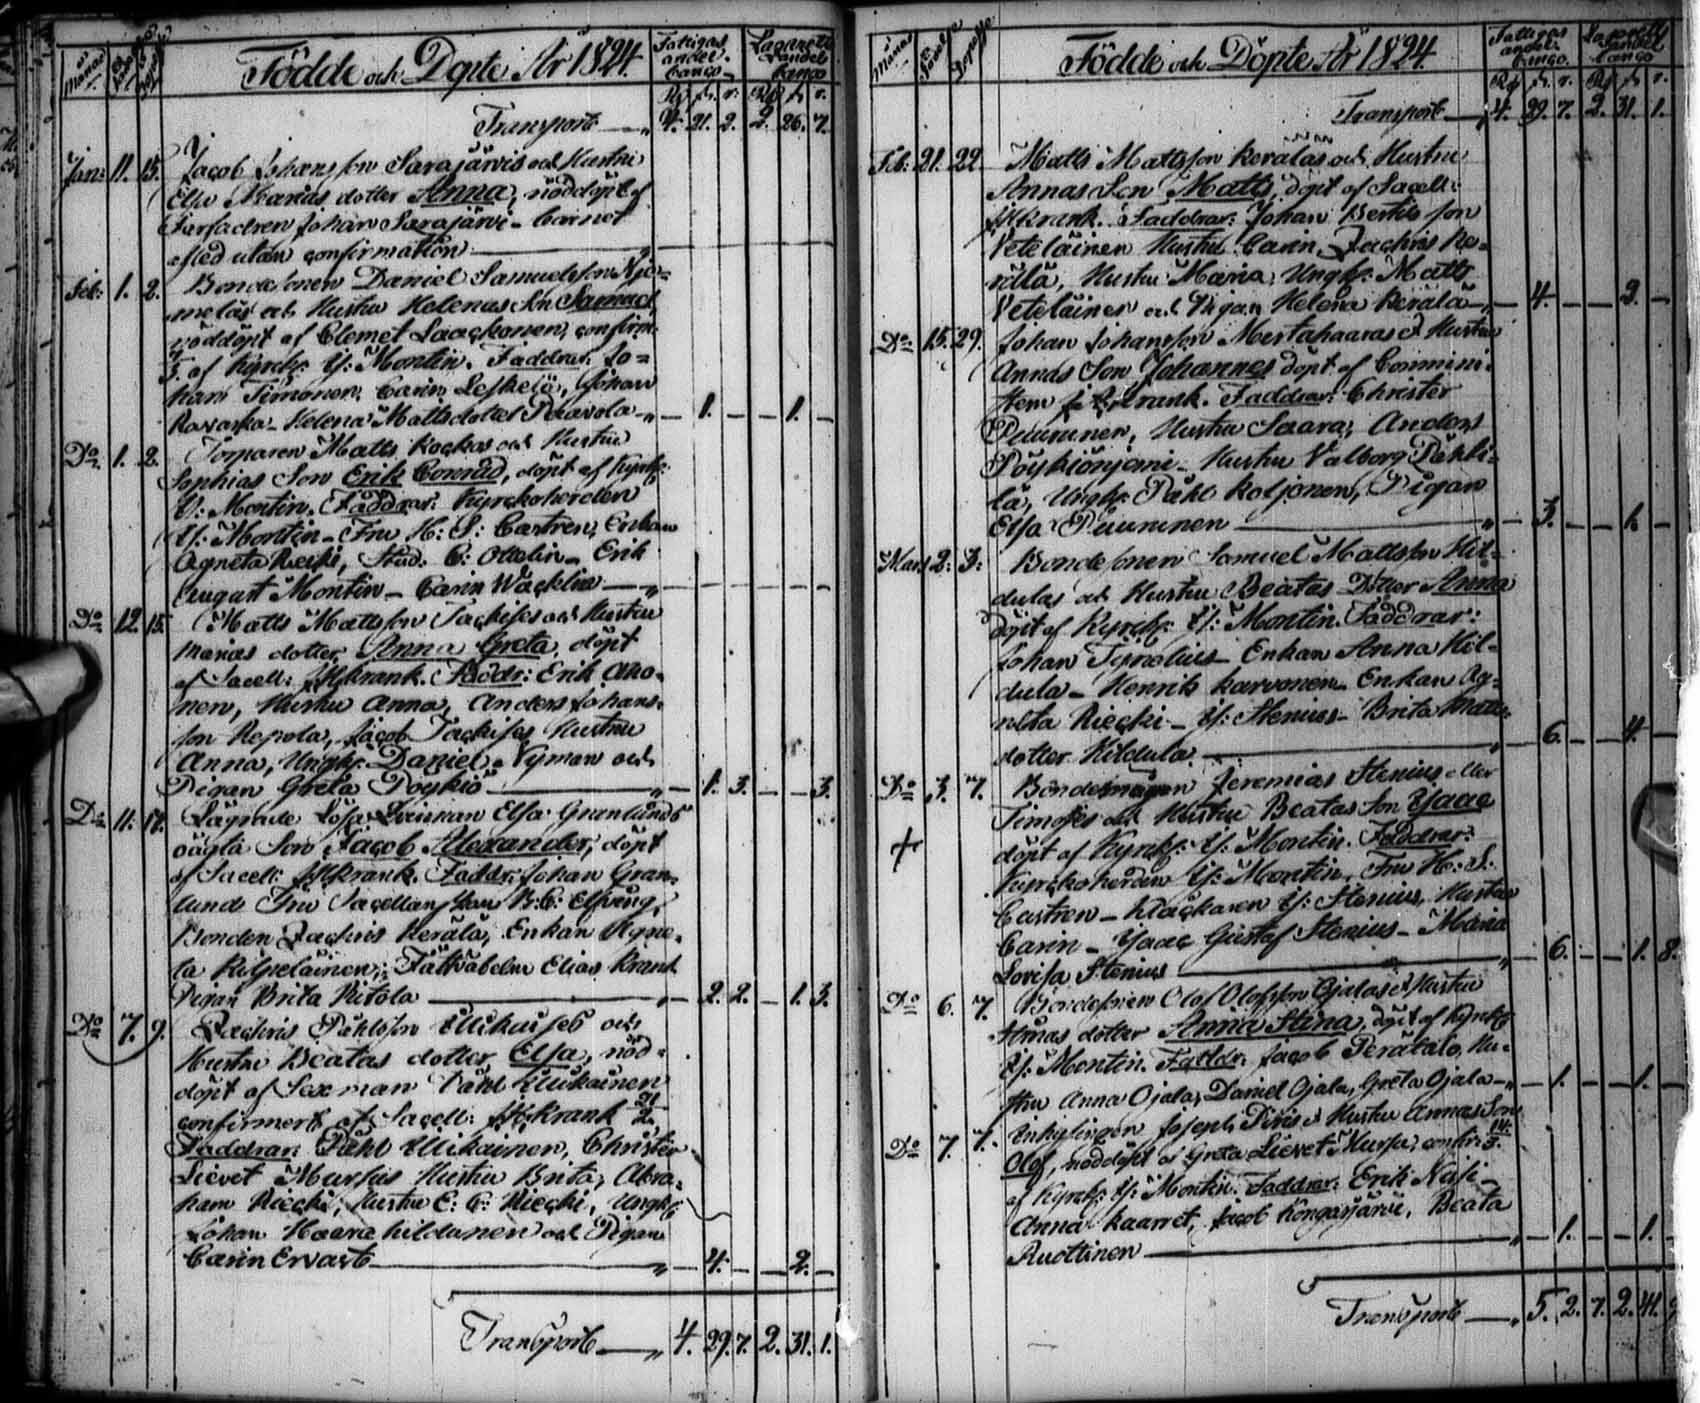 Månad Födelse Dop
Födde och Döpte År 1824.
Fattigas andel: banco
Lazarett andel banco
Rd s. r. Rd s. r.
Transport — 4. 21. 2. 2. 26. 7.
Jan: 11. 15. Jacob Johansson Sarajärvis och Hustru
dotter Anna, nöddöpt af
Farfadren Johan Sarajärvi - barnet
afled utan confirmation
Feb: 1. 2. Bondesonen Daniel Samuelsson
och Hustru Helenas Son Samuel,
nöddöpt af Clemet confirm:
af Kyrkh: Y: Montin. Faddrar: Jo=
han Timonen, Carin Leskelä, Johan
Helena Mattsdotter Paavola — 1. — — 1. —
Do 1. 2. Torparen Matts och Hustru
Sophias Son Erik Conrad, döpt af Kyrkh:
Y: Montin. Faddrar: Kyrckoherden
Y: Montin - Fru H: S: Castren, Enkan
Agneta Riecki, Stud. C: Ottelin - Erik
August Montin - Carin Wacklin
Do 12. 15. Matts Mattsson och Hustru
Marias dotter Anna Greta, döpt
af Sacell: Frikrank. Faddr: Erik Aho-
nen, Hustru Anna, Anders Johans-
son Repola, Jacob Hustru
Anna, Ungk: Daniel Nyman och
Pigan Greta Poykiö — 1. 3. — — 3.
Do 11. 17. Lösa Qvinnan Elsa Granlunds
oägta Son Jacob Alexander, döpt
af Sacell: Frikrank. Faddr: Johan Gran-
lund Fru Sacellanskan B: C: Elfving,
Bonden Zachris Kerälä, Enkan Agne-
ta Elias Krank
Pigan Brita Kitola — 2. 2. — 1. 3.
Do 7. 9. Zachris Påhlsson Ulikaises och
Hustru Beatas dotter Elsa, nöd-
döpt af Sexman Påhl Ulikainen
confirmert af Sacell: Frikrank
Faddrar: Påhl Ulikainen, Christer
Lievet Mursus Hustru Brita, Abra-
ham Riecki, Hustru E: C: Riecki, Ungk:
Johan Haara hildunen och Pigan
Carin Ervast — 4. — — 2. —
Transport — 4. 29. 7. 2. 31. 1.
Månad Födelse Dop
Födde och Döpte År 1824.
Fattigas andel: banco.
Lazarett andel banco
Rd s. r. Rd s. r.
Transport — 4. 29. 7. 2. 31. 1.
Feb: 21. 22. Matts Mattsson Kerälas och Hustru
Annas Son Matts, döpt af Sacell:
Frikrank. Faddrar: Johan Bertilsson
Veteläinen Hustru Carin, Zachris Ke-
rälä, Hustru Maria, Ungk: Matts
Veteläinen och Pigan Helena Kerälä — 4. — — 2. —
Do 15. 29. Johan Johansson Mustahaaras & Hustru
Annas Son Johannes döpt af Commini-
stern Frikrank. Faddrar: Christer
Puurunen, Hustru Saara, Anders
Pöykiönjemi - Hustru Valborg Påhki-
lä, Ungk: Påhl Koljonen, Pigan
Elsa Puurunen — 3. — — 1. —
Mars 2. 3. Bondesonen Samuel Mattsson Hil-
dulas och Hustru Beatas Dotter Anna
döpt af Kyrkh: Y: Montin. Faddrar:
Johan Tynelius - Enkan Anna Hil-
dula - Henrik Karvonen - Enkan Ag-
netha Riecki - Y: Stenius - Brita Matts-
dotter Hildula. — 6. — — 4. —
Do 3. 7. Bondemågen Jeremias Stenius eller
Timoses och Hustru Beatas Son Ysaac
döpt af Kyrkh: Y: Montin. Faddrar:
Kyrckoherden Y: Montin, Fru H: S:
Castren - Klåckaren Y: Stenius, Hustru
Carin - Ysaac Gustaf Stenius - Maria
Lovisa Stenius — 6. — — 1. 8.
Do 6. 7. Bondesonen Olof Olofsson Ojalas & Hustru
Annas dotter Anna Stina, döpt af Kyrkh:
Y: Montin. Faddr: Jacob Perätalo, Hu-
stru Anna Ojala, Daniel Ojala, Greta Ojala — 1. — — 1. —
Do 7. 7. Inhysingen Joseph Piris & Hustru Annas Son
Olof, nöddöpt af Greta Lievet Mursu, confir:
af Kyrkh: Y: Montin. Faddrar: Erik Näsi -
Anna Kaarret, Jacob Kongasjärvi, Beata
Ruottinen — 1. — — 1. —
Transport — 5. 2. 7. 2. 41.